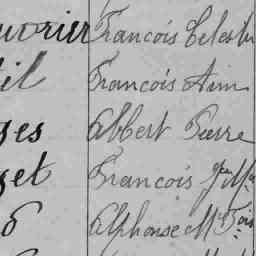 uvrier François Celesti
il François Aim
ges Albert Pierre
get François
Alphonse M